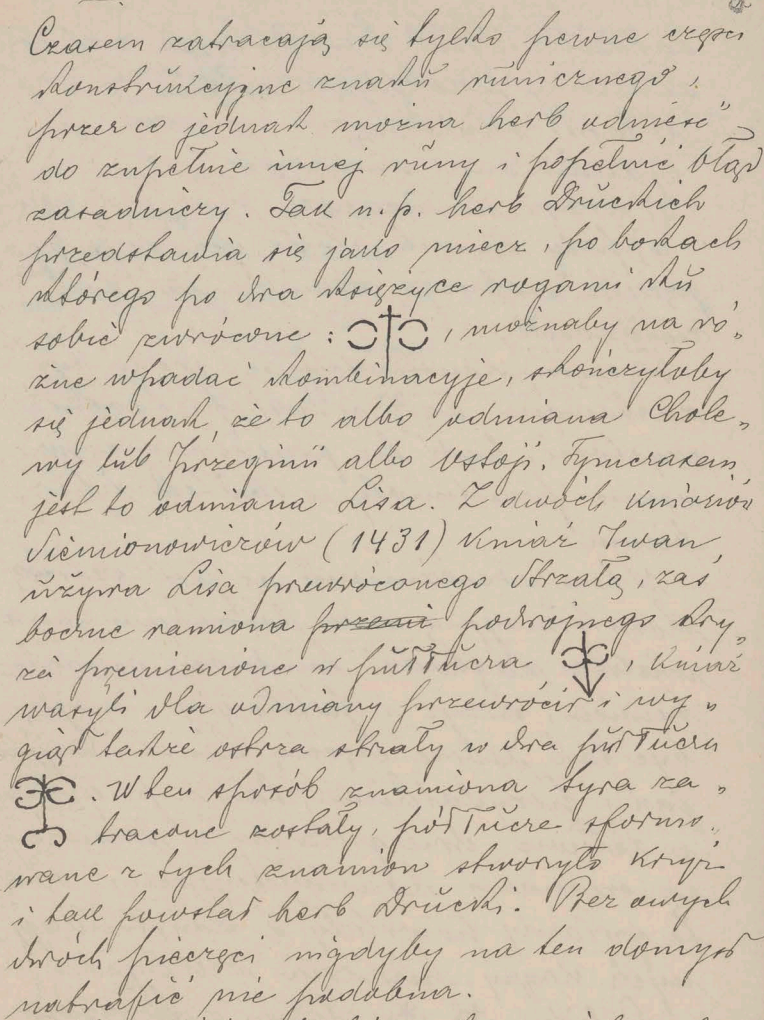 Czasem zatracają się tylko pewne części
konstrukcyjne znaku runicznego,
przez co jednak można herb odnieść
do zupełnie innej runy i popełnić błąd
zasadniczy. Tak n. p. herb Druckich
przedstawia się jako miecz, po bokach
którego po dwa księżyce rogami ku
sobie zwrócone : , możnaby na ró„
żne wpadać kombinacyje, skończyłoby
się jednak, że to albo odmiana Chole„
wy lub Przeginii albo Ostoji. Tymczasem
jest to odmiana Lisa. Z dwóch kniaziów
Siemionowiczów (1431) Kniaź Iwan
używa Lisa przewróconego Strzałą, zaś
boczne ramiona podwójnego krzy„
ża przemienione w półłucza , Kniaź
Wasyli dla odmiany przewrócił i wy„
giął także ostrza strzały w dwa półłucza
. W ten sposób znamiona tyra za„
tracone zostały, półłucze sformo„
wane z tych znamion stworzyło krzyż
i tak powstał herb Drucki. Bez owych
dwóch pieczęci nigdyby na ten domysł
natrafić nie podobna.